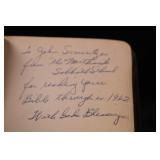 To John
from the
Sabbath School
for reading your
Bible through in 1962
With God's Blessings